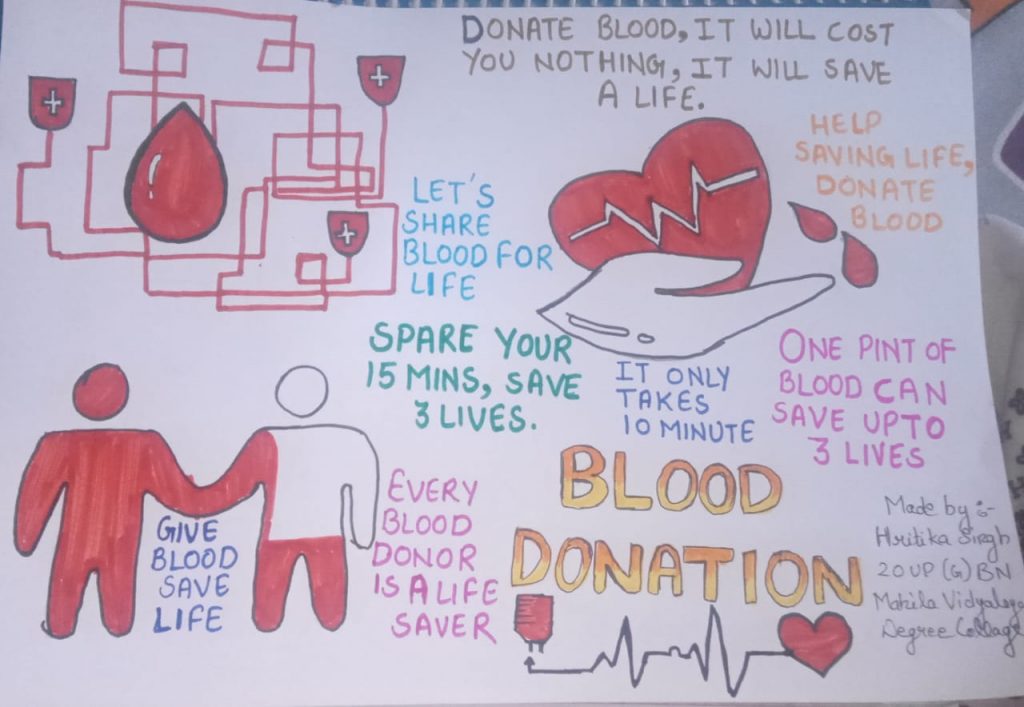 DONATE BLOOD, IT WILL COST
YOU NOTHING, IT WILL SAVE
A LIFE.
HELP
SAVING LIFE,
DONATE
BLOOD
LET'S
SHARE
BLOOD FOR
LIFE
SPARE YOUR
15 MINS, SAVE
3 LIVES.
IT ONLY
TAKES
10 MINUTE
ONE PINT OF
BLOOD CAN
SAVE UPTO
3 LIVES
GIVE
BLOOD
SAVE
LIFE
EVERY
BLOOD
DONOR
IS A LIFE
SAVER
BLOOD
DONATION
Made by :-
Hritika Singh
20 UP (G) BN
Mahila Vidyalaya
Degree Collage